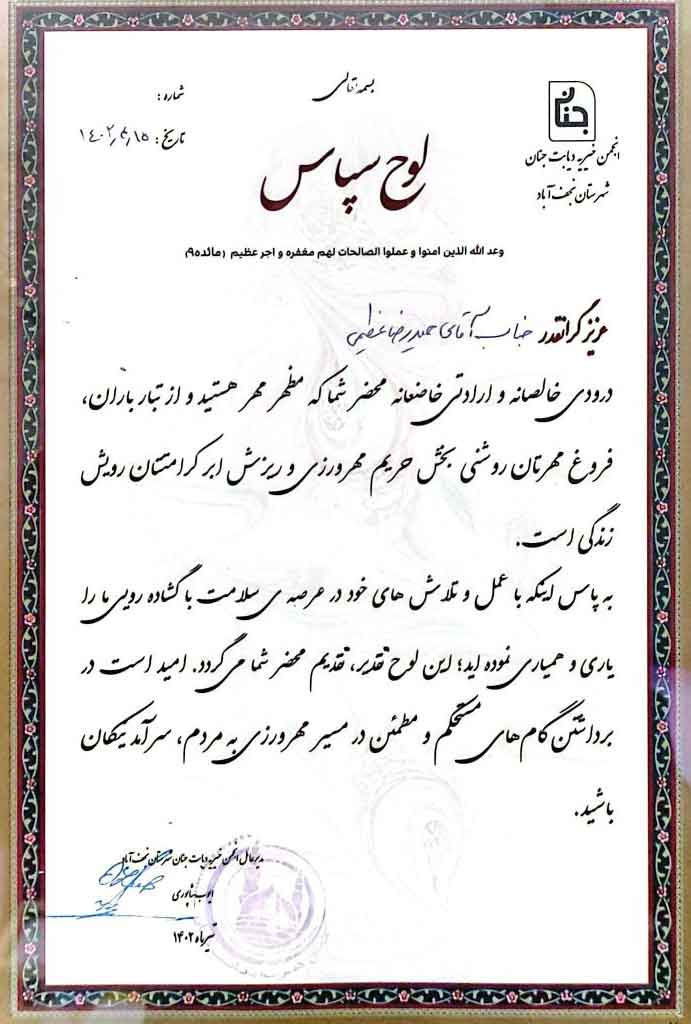 بسمه تعالی
شماره :
تاریخ : ۱۴۰۲٫۴٫۱۵
جنان
انجمن خیریه دیابت جنان
شهرستان نجف آباد
لوح سپاس
وعد الله الذین امنوا و عملوا الصالحات لهم مغفره و اجر عظیم (مائده۹)
عزیز گرانقدر جناب آقای حمیدرضا عظیمی
درودی خالصانه و ارادتی خاضعانه محضر شما که مظهر مهر هستید و از تبار باران،
فروغ مهرتان روشنی بخش حریم مهرورزی و ریزش ابر کرامتتان رویش
زندگی است.
به پاس اینکه با عمل و تلاش های خود در عرصه ی سلامت با گشاده رویی ما را
یاری و همیاری نموده اید؛ این لوح تقدیر، تقدیم محضر شما می گردد. امید است در
برداشتن گام های مستحکم و مطمئن در مسیر مهرورزی به مردم، سرآمد نیکان
باشید.
مدیرعامل انجمن خیریه دیابت جنان شهرستان نجف آباد
ایوب شاپوری
تیرماه ۱۴۰۲